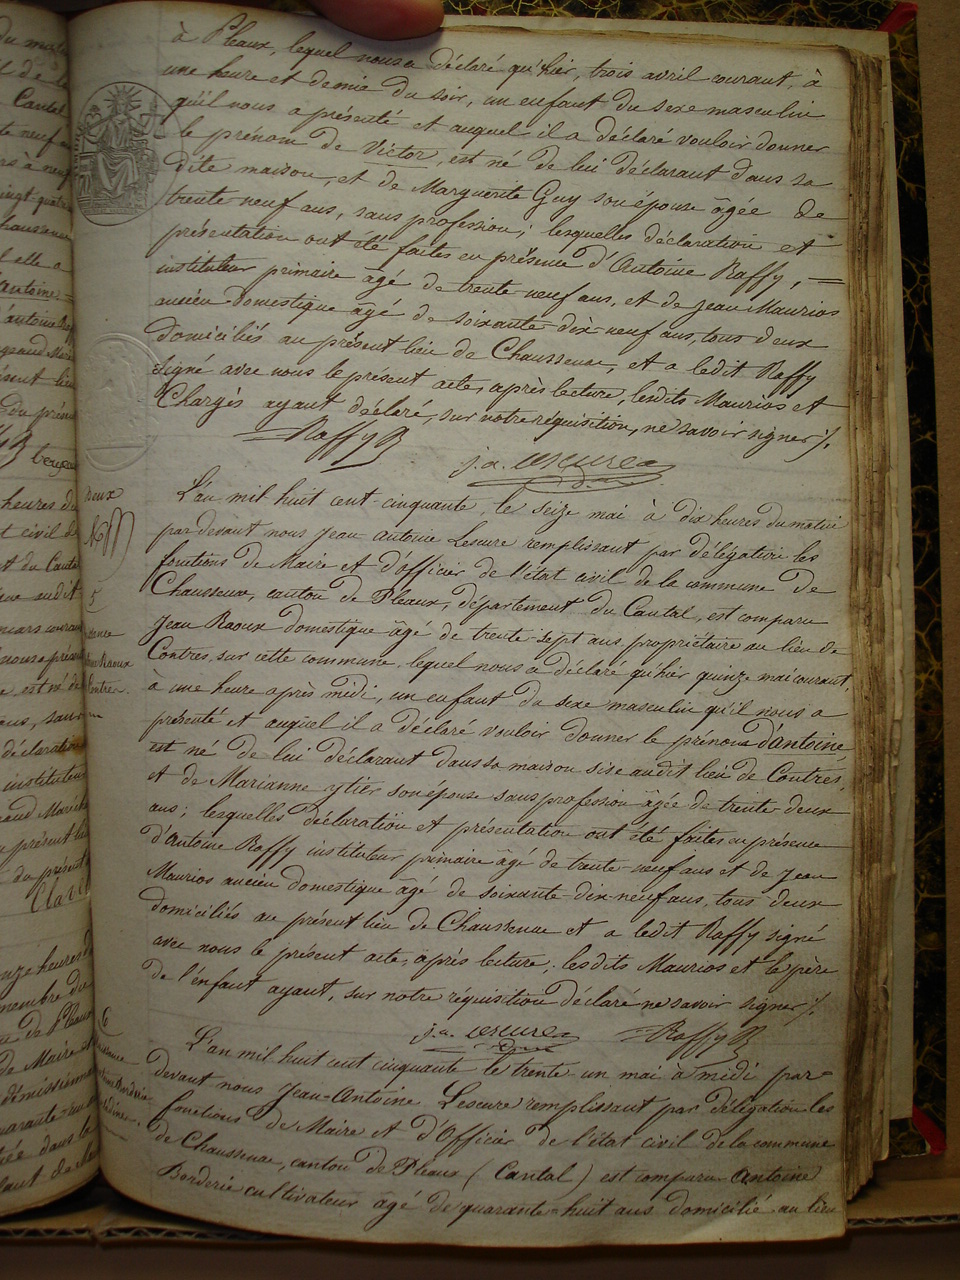 à Pleaux, lequel nous a déclaré qu'hier, trois avril courant, à
une heure et demie du soir, un enfant du sexe masculin
qu'il nous a présenté et auquel il a déclaré vouloir donner
le prénom de Victor, est né de lui déclarant dans sa
dite maison, et de Marguerite Guy son épouse âgée de
trente-neuf ans, sans profession; lesquelles déclaration et
présentation ont été faites en présence d'Antoine Raffy, =
instituteur primaire âgé de trente neuf ans, et de Jean Maurios
ancien domestique âgé de soixante-dix-neuf ans, tous deux
domiciliés au présent lieu de Chaussenac, et a ledit Raffy
signé avec nous le présent acte, après lecture, lesdits Maurios et
Chargès ayant déclaré, sur notre réquisition, ne savoir signer /.
Raffy
j.a. Lescure
L'an mil huit cent cinquante, le seize mai à dix heures du matin
par devant nous Jean Antoine Lescure remplissant par délégation les
fonctions de Maire et d'officier de l'état civil de la commune de
Chaussenac, canton de Pleaux, département du Cantal, est comparu
Jean Raoux domestique âgé de trente-sept ans, propriétaire au lieu de
Contres, sur cette commune, lequel nous a déclaré qu'hier quinze mai courant,
à une heure après midi, un enfant du sexe masculin qu'il nous a
présenté et auquel il a déclaré vouloir donner le prénom d'Antoine
est né de lui déclarant dans sa maison sise audit lieu de Contres,
et de Marianne ytier son épouse sans profession âgée de trente-deux
ans; lesquelles déclaration et présentation ont été faites en présence
d'Antoine Raffy instituteur primaire âgé de trente-neuf ans et de Jean
Maurios ancien domestique âgé de soixante-dix-neuf ans, tous deux
domiciliés au présent lieu de Chaussenac et a ledit Raffy signé
avec nous le présent acte, après lecture, lesdits Maurios et le père
de l'enfant ayant, sur notre réquisition déclaré ne savoir signer /.
j.a. Lescure Raffy
6
L'an mil huit cent cinquante le trente un mai à midi par=
devant nous Jean-Antoine Lescure remplissant par délégation les
fonctions de Maire et d'Officier de l'état civil de la commune
de Chaussenac, canton de Pleaux (Cantal) est comparu Antoine
Borderie cultivateur âgé de quarante-huit ans domicilié au lieu